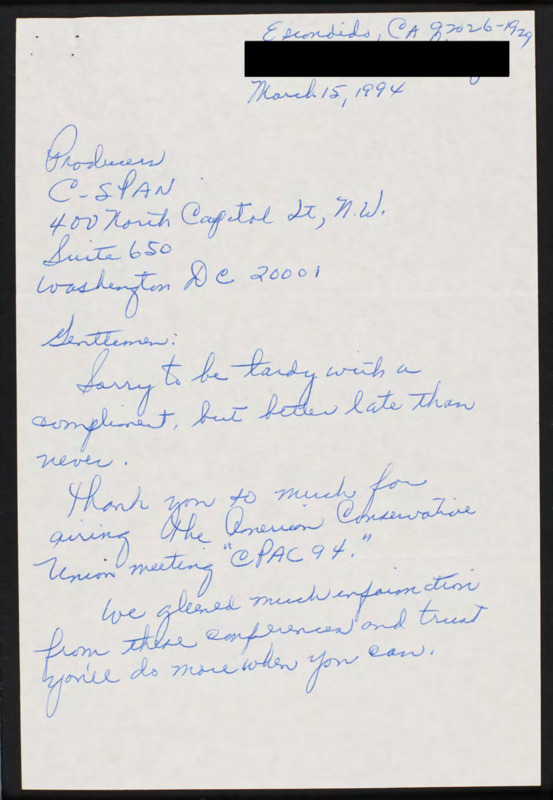 Escondido, CA 92026-1929
March 15, 1994
Producers
C-SPAN
400 North Capitol St, N.W.
Suite 650
Washington DC 20001
Gentlemen:
Sorry to be tardy with a
compliment, but better late than
never.
Thank you so much for
airing the American Conservative
Union meeting "CPAC 94."
We gleened much information
from these conferences and trust
you'll do more when you can.